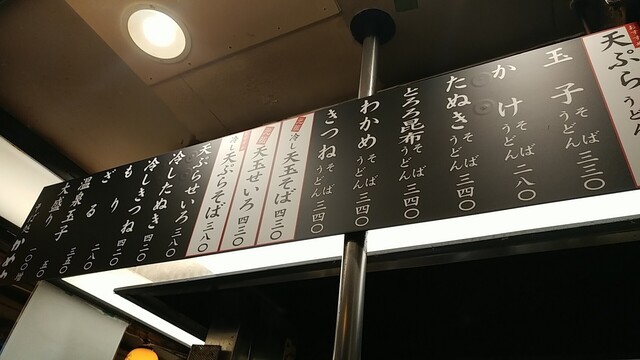 天ぷら うどん
玉子 そば うどん 三三〇
かけ そば うどん 二八〇
たぬき そば うどん 三四〇
とろろ昆布 そば うどん 三四〇
わかめ そば うどん 三四〇
きつね そば うどん 三四〇
冷し 天玉そば 四三〇
天玉せいろ 四三〇
冷し 天ぷらそば 三八〇
天ぷらせいろ 三八〇
冷したぬき 四二〇
冷しきつね 四二〇
もり
ざる 二八〇
温泉玉子
大盛り